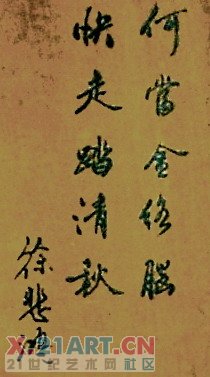 何当金络脑
快走踏清秋
徐悲鸿
X21ART.CN
21世纪艺术网社区.CN